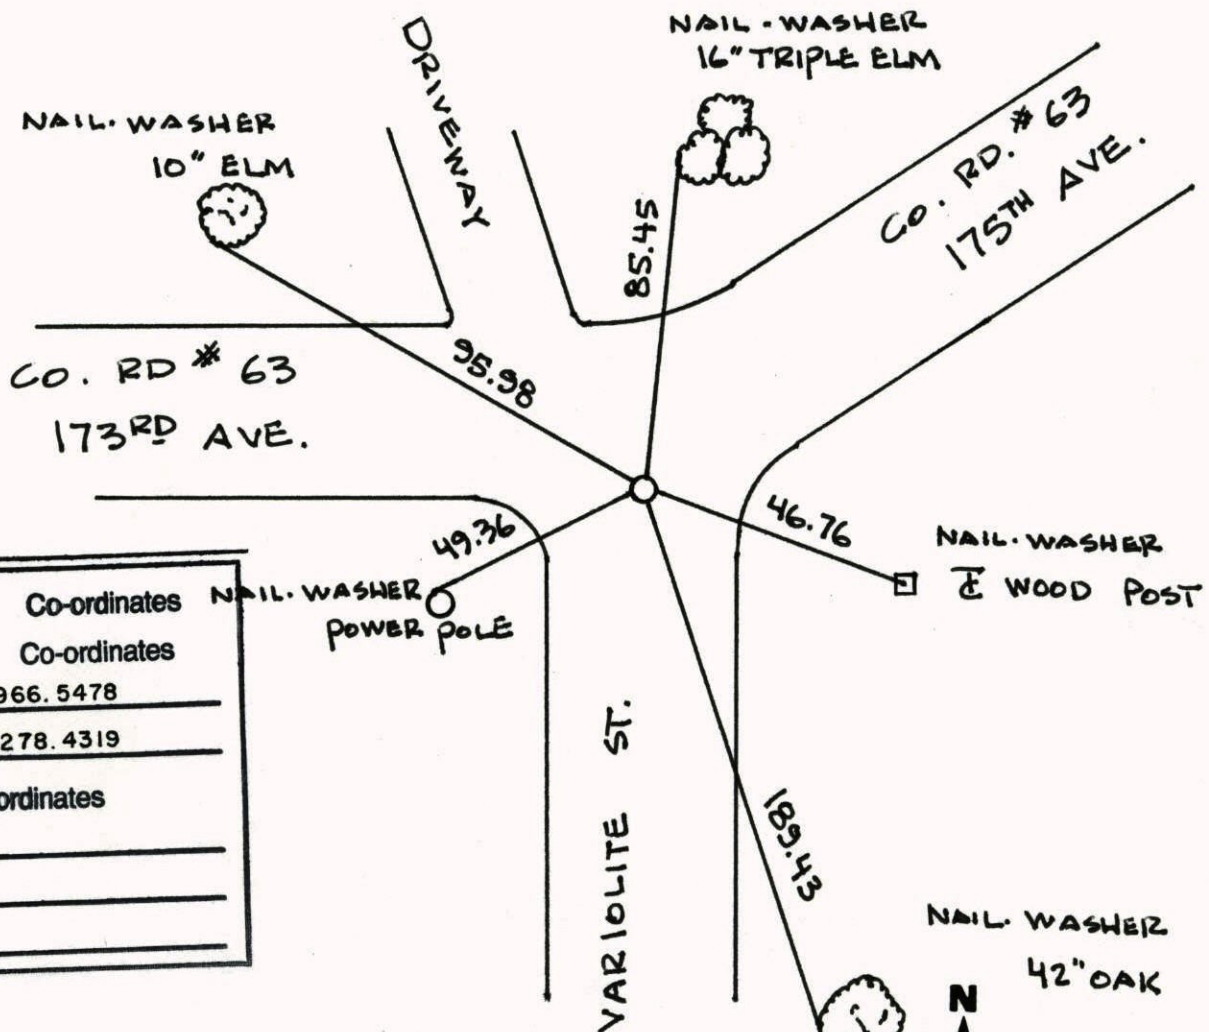 NAIL · WASHER
16" TRIPLE ELM
DRIVEWAY
NAIL · WASHER
10" ELM
CO. RD. # 63
175TH AVE.
85.45
CO. RD # 63
173RD AVE.
95.98
49.36
46.76
NAIL · WASHER
WOOD POST
NAIL · WASHER
POWER POLE
Co-ordinates
Co-ordinates
966.5478
278.4319
ordinates
VARIOLITE ST.
189.43
NAIL · WASHER
42" OAK
N